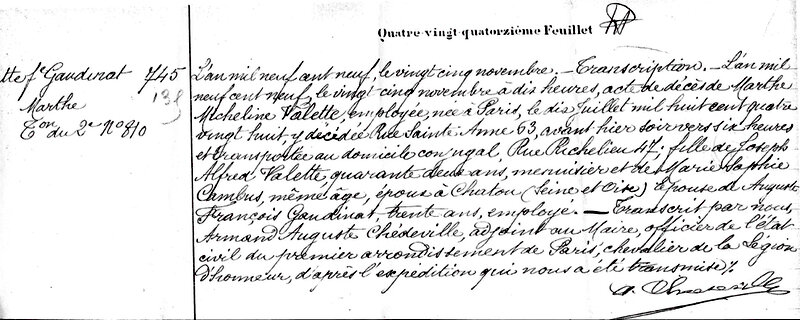 Quatre-vingt-quatorzième Feuillet
tte fe Gaudinat 745
Marthe
Ton du 2e No 810
L'an mil neuf cent neuf, le vingt cinq novembre. — Transcription. — L'an mil
neuf cent neuf, le vingt cinq novembre à dix heures, acte de décès de Marthe
Micheline Valette, employée, née à Paris, le dix Juillet mil huit cent quatre
vingt huit, y décédée Rue Sainte-Anne 63, avant hier soir vers six heures
et transportée au domicile conjugal, Rue Richelieu 47; fille de Joseph
Alfred Valette, quarante deux ans, menuisier et de Marie Sophie
Cambus, même âge, époux à Chatou (Seine et Oise) Epouse de Auguste
François Gaudinat, trente ans, employé. — Transcrit par nous,
Armand Auguste Chédeville, adjoint au Maire, officier de l'état
civil du premier arrondissement de Paris, chevalier de la Légion
D'honneur, d'après l'expédition qui nous a été transmise /.